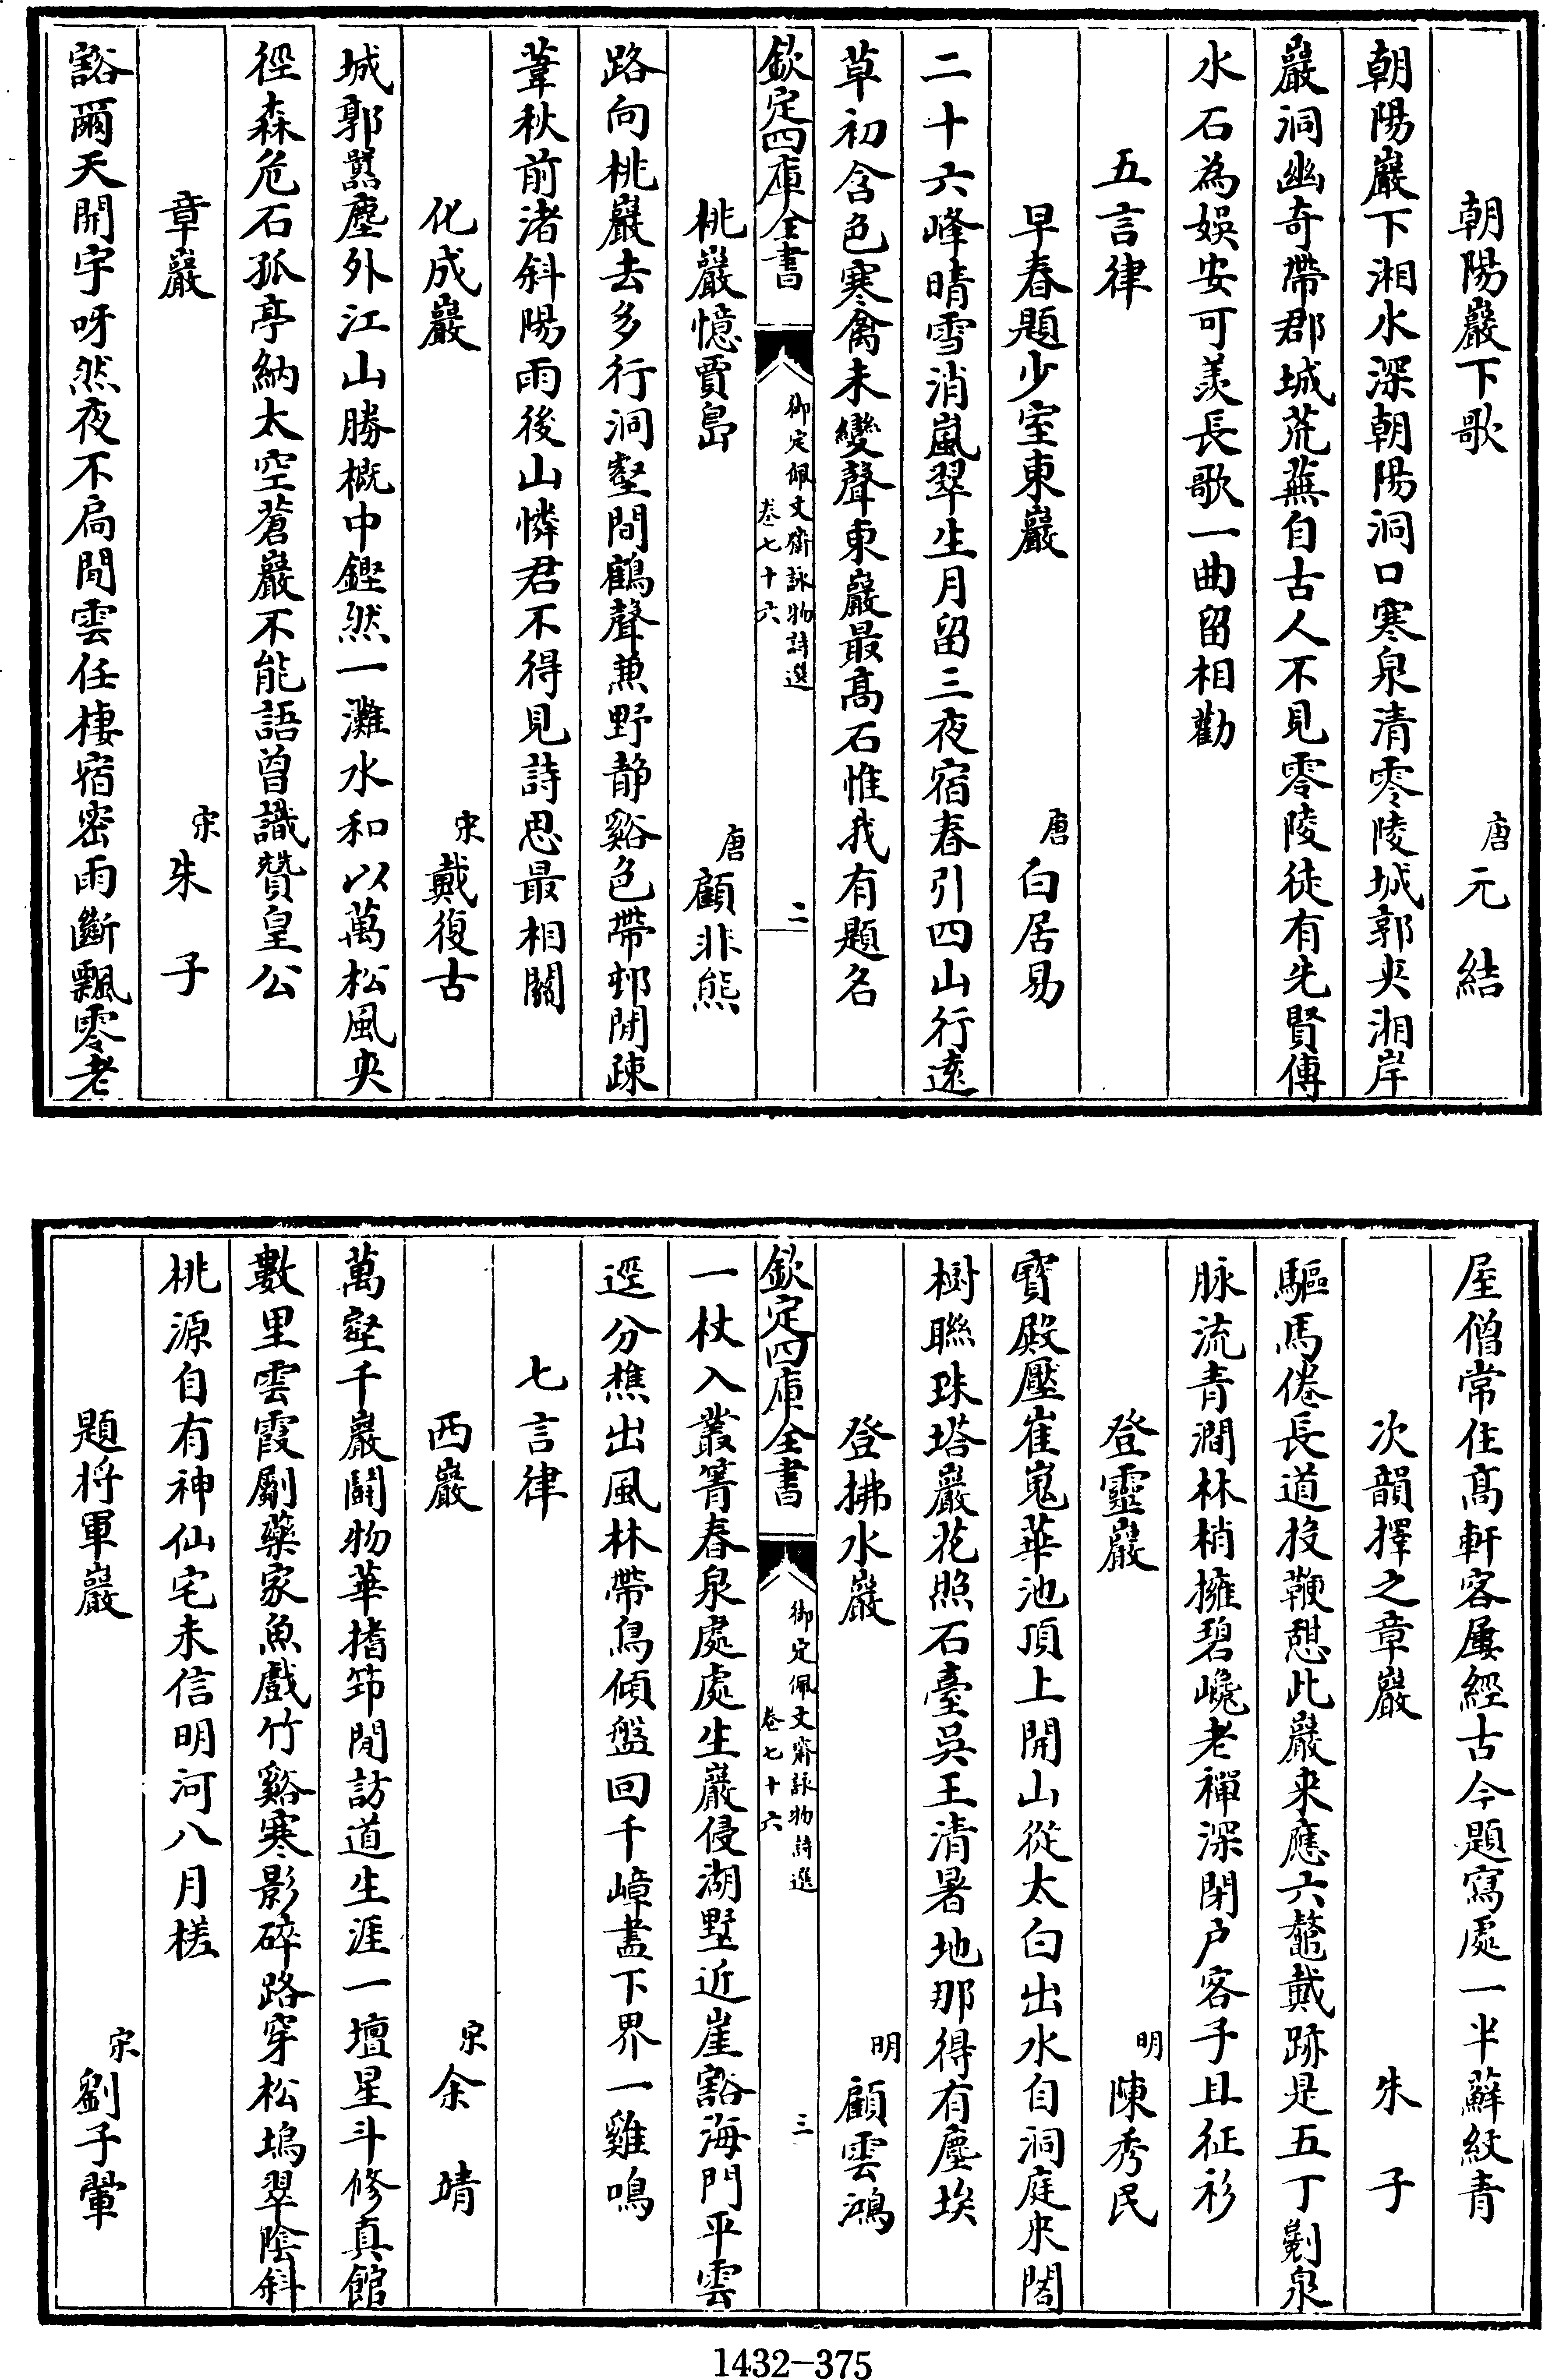 朝陽巖下歌　唐　元結
朝陽巖下湘水深朝陽洞口寒泉清零陵城郭夾湘岸
巖洞幽奇帶郡城荒蕪自古人不見零陵徒有先賢傳
水石為娛安可羨長歌一曲留相勸
五言律
早春題少室東巖　唐　白居易
二十六峰晴雪消嵐翠生月留三夜宿春引四山行遠
草初含色寒禽未變聲東巖最高石惟我有題名
欽定四庫全書　御定佩文齋詠物詩選　卷七十六　二
桃巖憶賈島　唐　顧非熊
路向桃巖去多行洞壑間鶴聲兼野靜谿色帶邨閒疎
葦秋前渚斜陽雨後山憐君不得見詩思最相關
化成巖　宋　戴復古
城郭囂塵外江山勝概中鏗然一灘水和以萬松風央
徑森危石孤亭納太空蒼巖不能語曾識贊皇公
章巖　宋　朱子
豁爾天開宇呀然夜不扃閒雲任棲宿密雨斷飄零老
屋僧常住高軒客屢經古今題寫處一半蘚紋青
次韻擇之章巖　朱子
驅馬倦長道投鞭憩此巖來應六鼇戴跡是五丁劖泉
脉流青澗林梢擁碧巉老禪深閉户客子且征衫
登靈巖　明　陳秀民
寶殿壓崔嵬華池頂上開山從太白出水自洞庭來閣
樹聯珠塔巖花照石臺吳王清暑地那得有塵埃
登拂水巖　明　顧雲鴻
欽定四庫全書　御定佩文齋詠物詩選　卷七十六　三
一杖入叢箐春泉處處生巖侵湖墅近崖豁海門平雲
逕分樵出風林帶鳥傾盤回千嶂盡下界一雞鳴
七言律
西巖　宋　余靖
萬壑千巖鬪物華搘筇閒訪道生涯一壇星斗修真館
數里雲霞劚藥家魚戲竹谿寒影碎路穿松塢翠陰斜
桃源自有神仙宅未信明河八月槎
題將軍巖　宋　劉子翬
1432-375